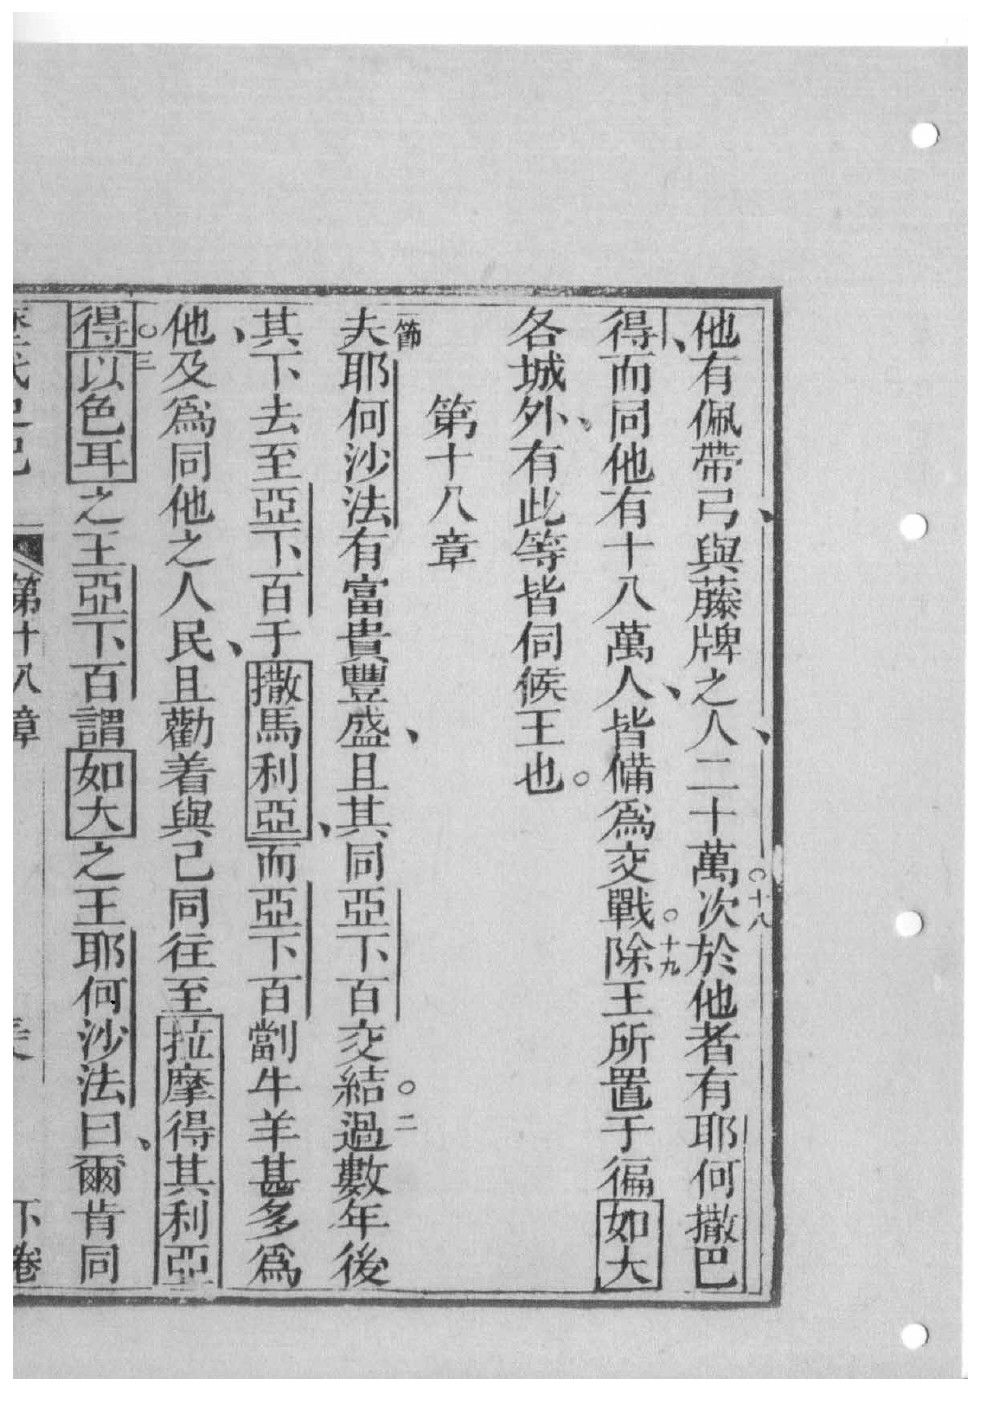 他有佩帶弓、與藤牌之人、二十萬。○十八次於他者有耶何撒巴
得、而同他有十八萬人、皆備爲交戰。○十九除王所置于徧如大
各城外、有此等皆伺候王也。
第十八章
一節夫耶何沙法有富貴豐盛、且其同亞下百交結。○二過數年後
其下去至亞下百于撒馬利亞、而亞下百劏牛羊甚多爲
他、及爲同他之人民、且勸着與己同往至拉摩得其利亞
得。○三以色耳之王亞下百謂如大之王耶何沙法曰、爾肯同
第十八章 下卷